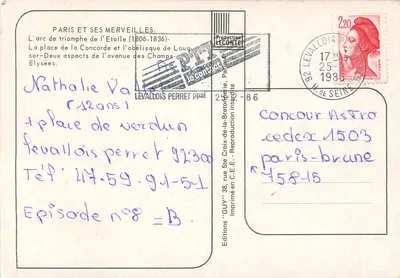 PARIS ET SES MERVEILLES
L'arc de triomphe de l'Etoile (1806-1836)-
La place de la Concorde et l'obélisque de Louq
sor-Deux aspects de l'avenue des Champs
Elysées.
Nathalie Va
(12ans)
1 place de verdun
levallois perret 92300
Tél: 47-59-91-51
Episode n°8 =B.
PTT
LEVALLOIS PERRET ppal
25-86
Production
LECONTE
Editions "GUY" 38, rue Ste Croix-de-la-Bretonnerie, Pa
Imprimé en C.E.E. - Reproduction interdite
92 LEVALLOIS
17
25-
1986
H. DE SEINE
2,20
Concour Astro
cedex 1503
paris-brune
75815